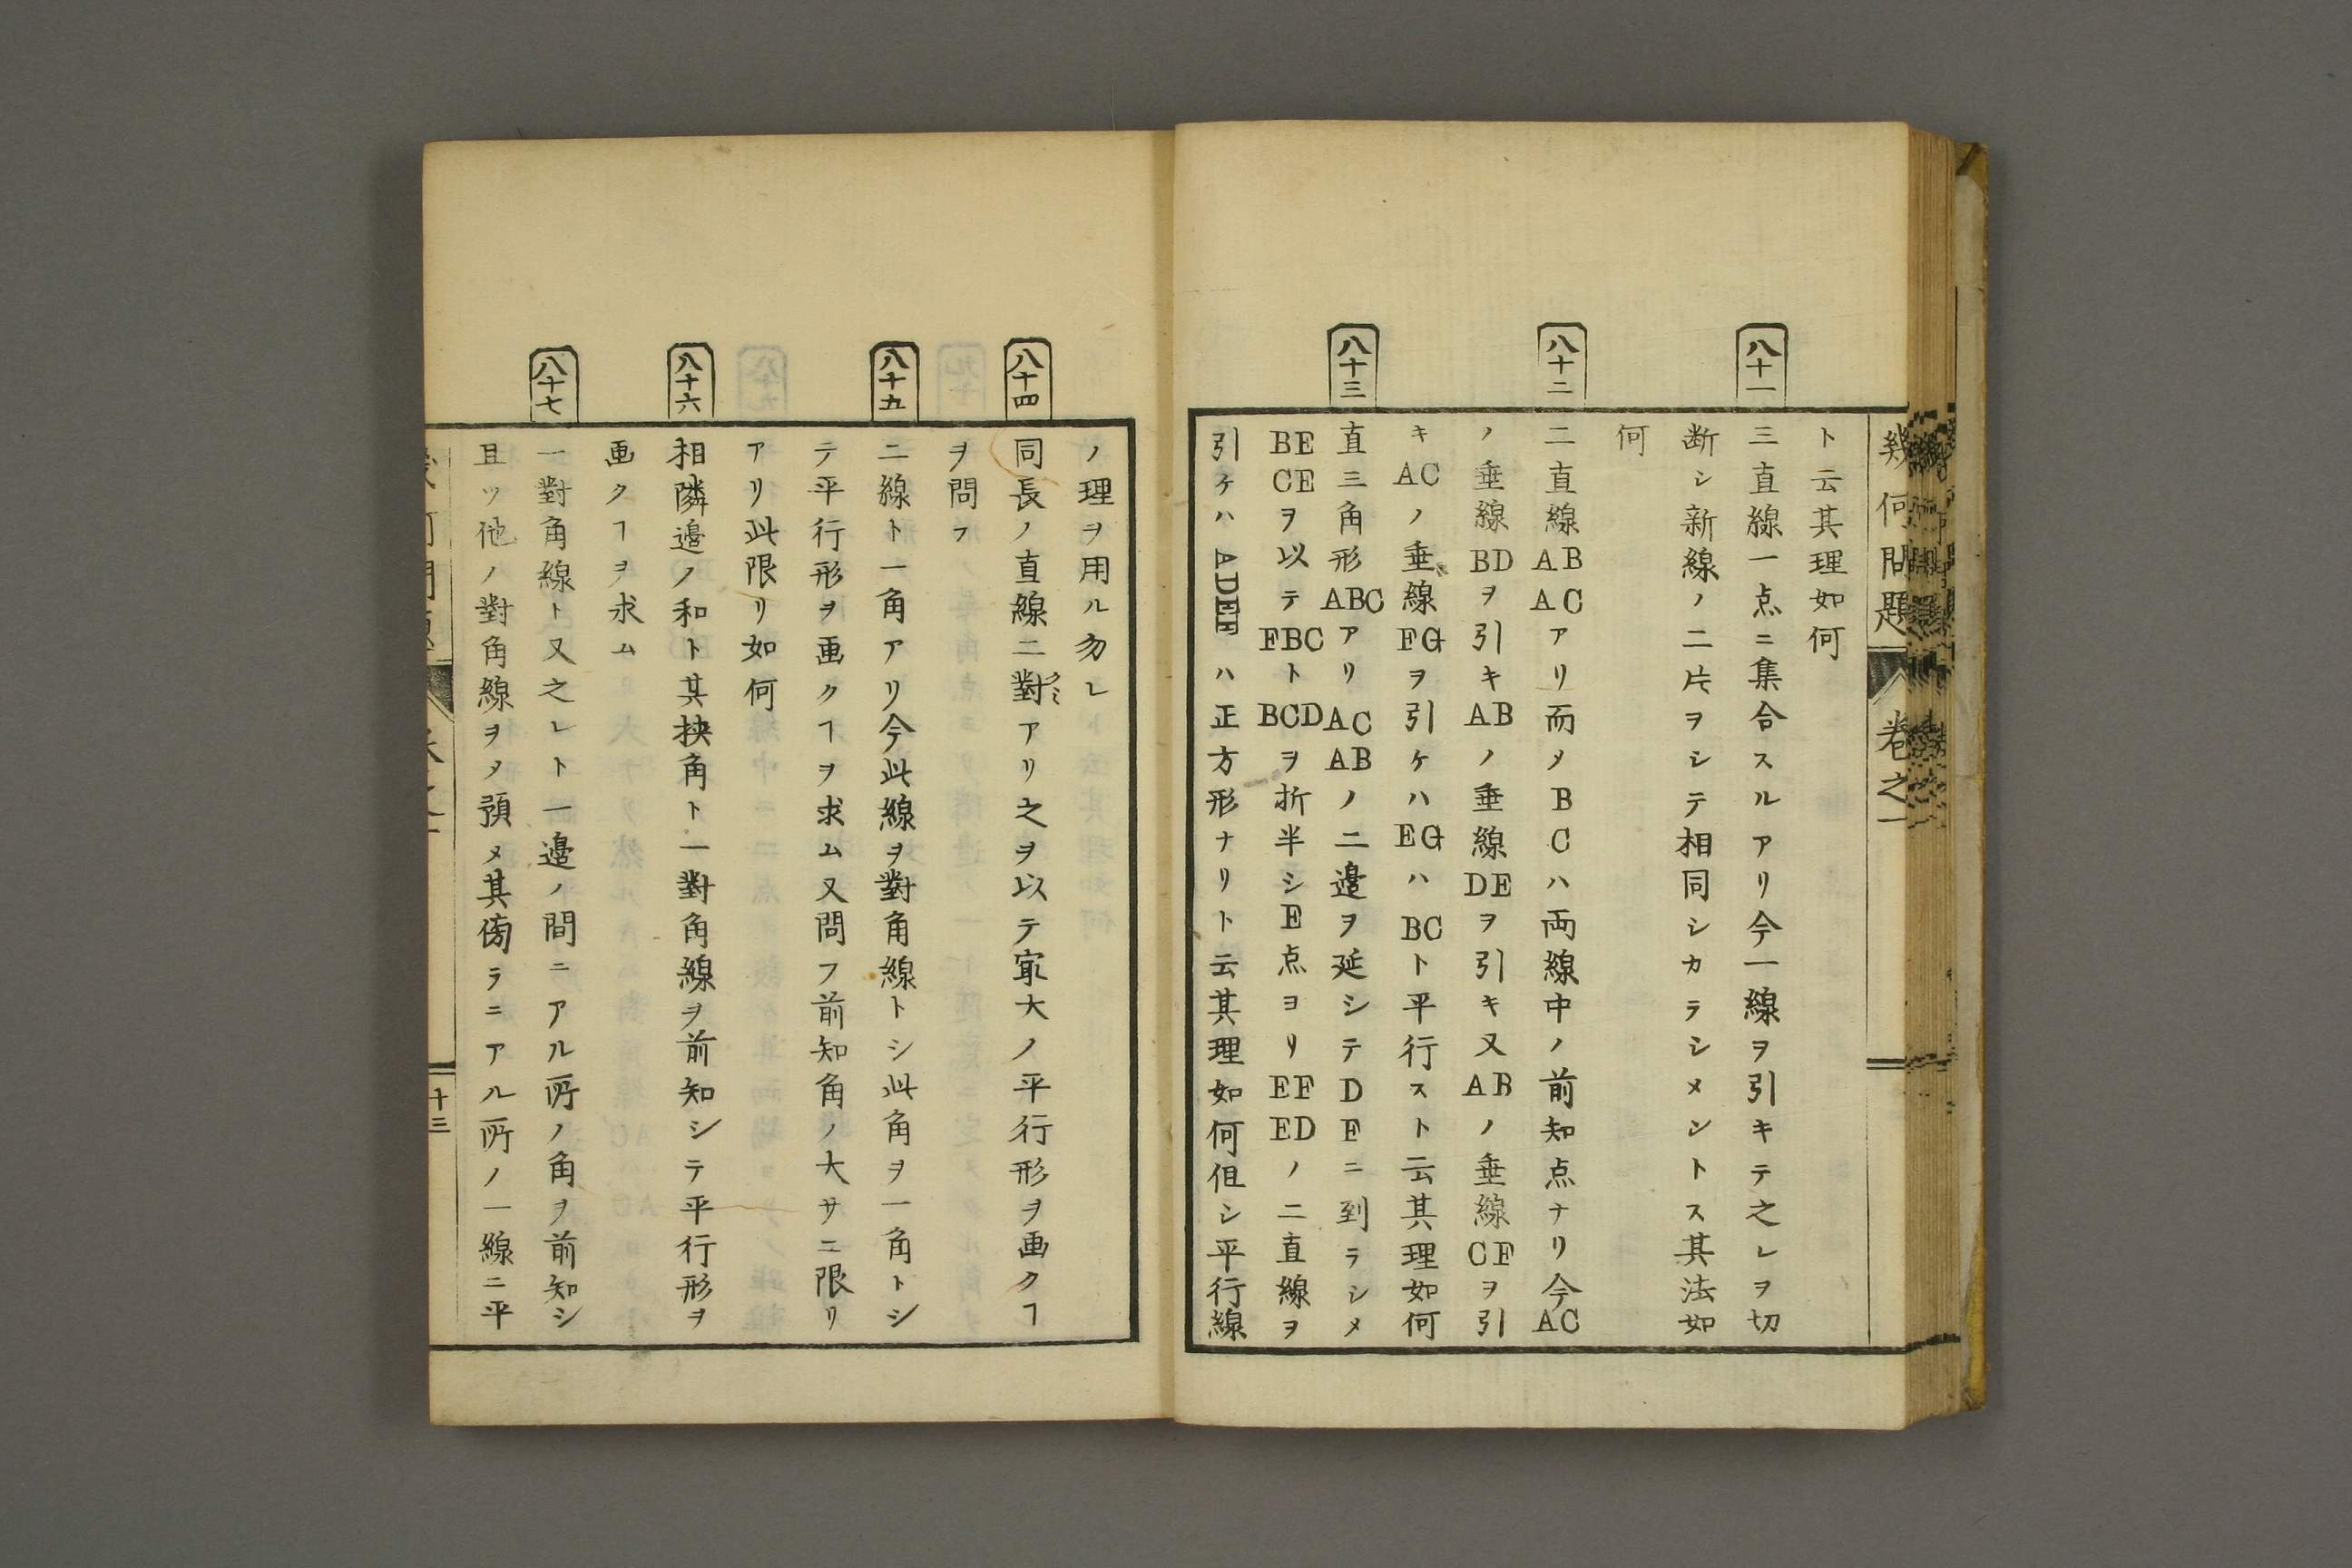 幾何問題
卷之一
ト云其理如何
八十一
三直線一点ニ集合スルアリ今一線ヲ引キテ之レヲ切
断シ新線ノ二片ヲシテ相同シカラシメントス其法如
何
八十二
二直線ABACアリ而メBCハ両線中ノ前知点ナリ今AC
ノ垂線BDヲ引キABノ垂線DEヲ引キ又ABノ垂線CFヲ引
キACノ垂線FGヲ引ケハEGハBCト平行スト云其理如何
八十三
直三角形ABCアリACABノ二邉ヲ延シテDFニ到ラシメ
BECEヲ以テFBCトBCDヲ折半シE点ヨリEFEDノ二直線ヲ
引ケハADEFハ正方形ナリト云其理如何但シ平行線
ノ理ヲ用ル勿レ
八十四
同長ノ直線二對クミアリ之ヲ以テ㝡大ノ平行形ヲ画クヿ
ヲ問フ
八十五
二線ト一角アリ今此線ヲ對角線トシ此角ヲ一角トシ
テ平行形ヲ画クヿヲ求ム又問フ前知角ノ大サニ限リ
アリ此限リ如何
八十六
相隣邉ノ和ト其挾角ト一對角線ヲ前知シテ平行形ヲ
画クヿヲ求ム
八十七
一對角線ト又之レト一邉ノ間ニアル所ノ角ヲ前知シ
且ツ他ノ對角線ヲメ預メ其傍ラニアル所ノ一線ニ平
十三